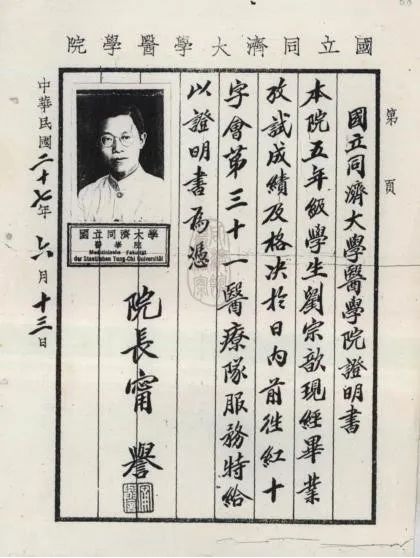 國立同濟大學醫學院
第　頁
國立同濟大學醫學院證明書
本院五年級學生劉宗歆現經畢業
攷試成績及格决於日內前往紅十
字會第三十一醫療隊服務特給
以證明書爲憑
國立同濟大學
醫學院
Medizinische Fakultät
der Staatlichen Tung-Chi Universität
院長甯譽
中華民國二十七年六月十三日